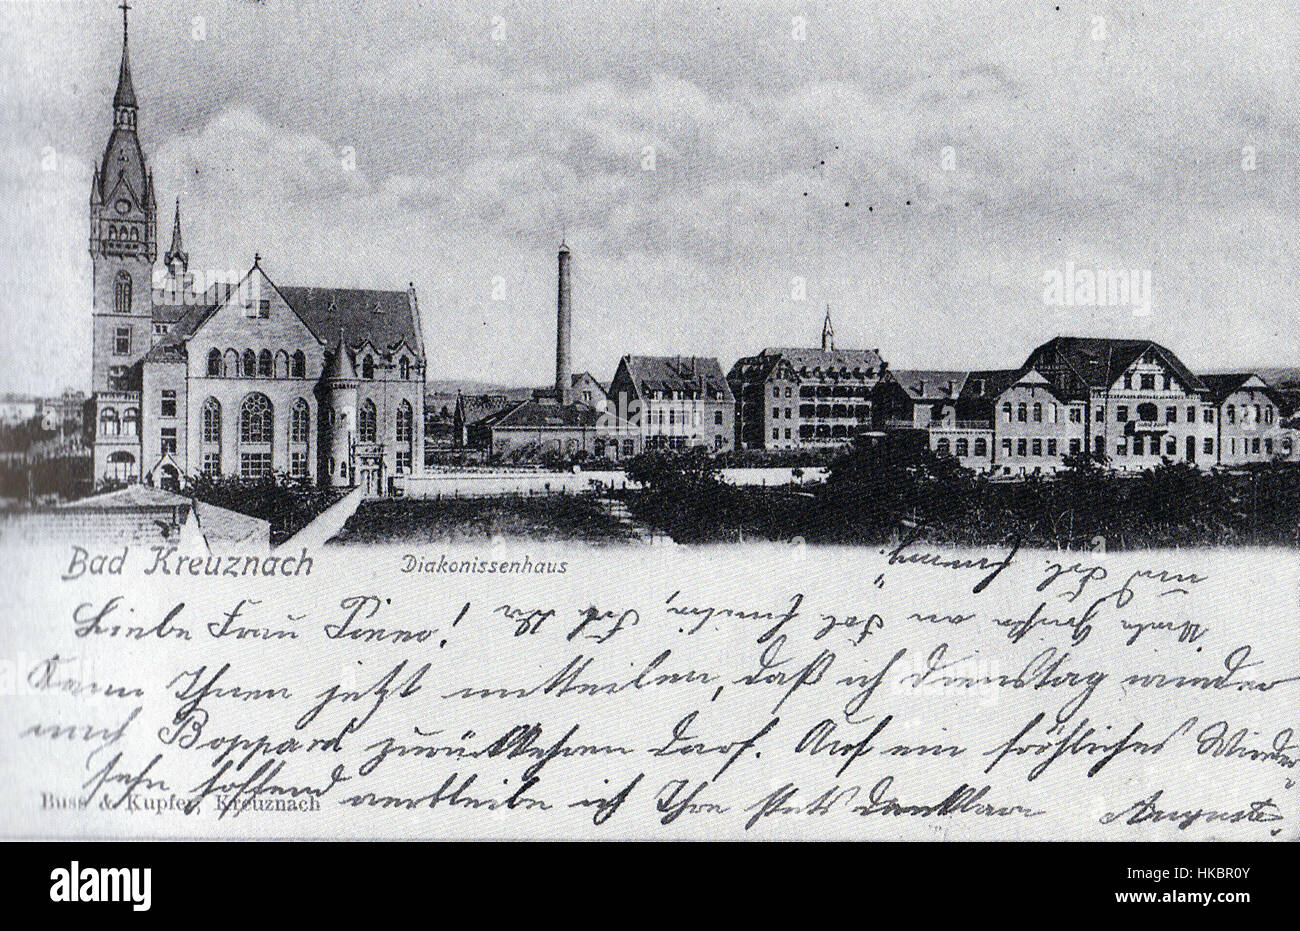 Bad Kreuznach
Diakonissenhaus
Liebe Frau !
Kann Ihnen jetzt mitteilen, daß ich Dienstag wieder
nach Boppard zurückkehren darf. Auf ein fröhliches Wieder-
sehn hoffend verbleibe ich Ihre stets dankbare Auguste.
Buss & Kupfer, Kreuznach
alamy
alamy stock photo
HKBR0Y
www.alamy.com